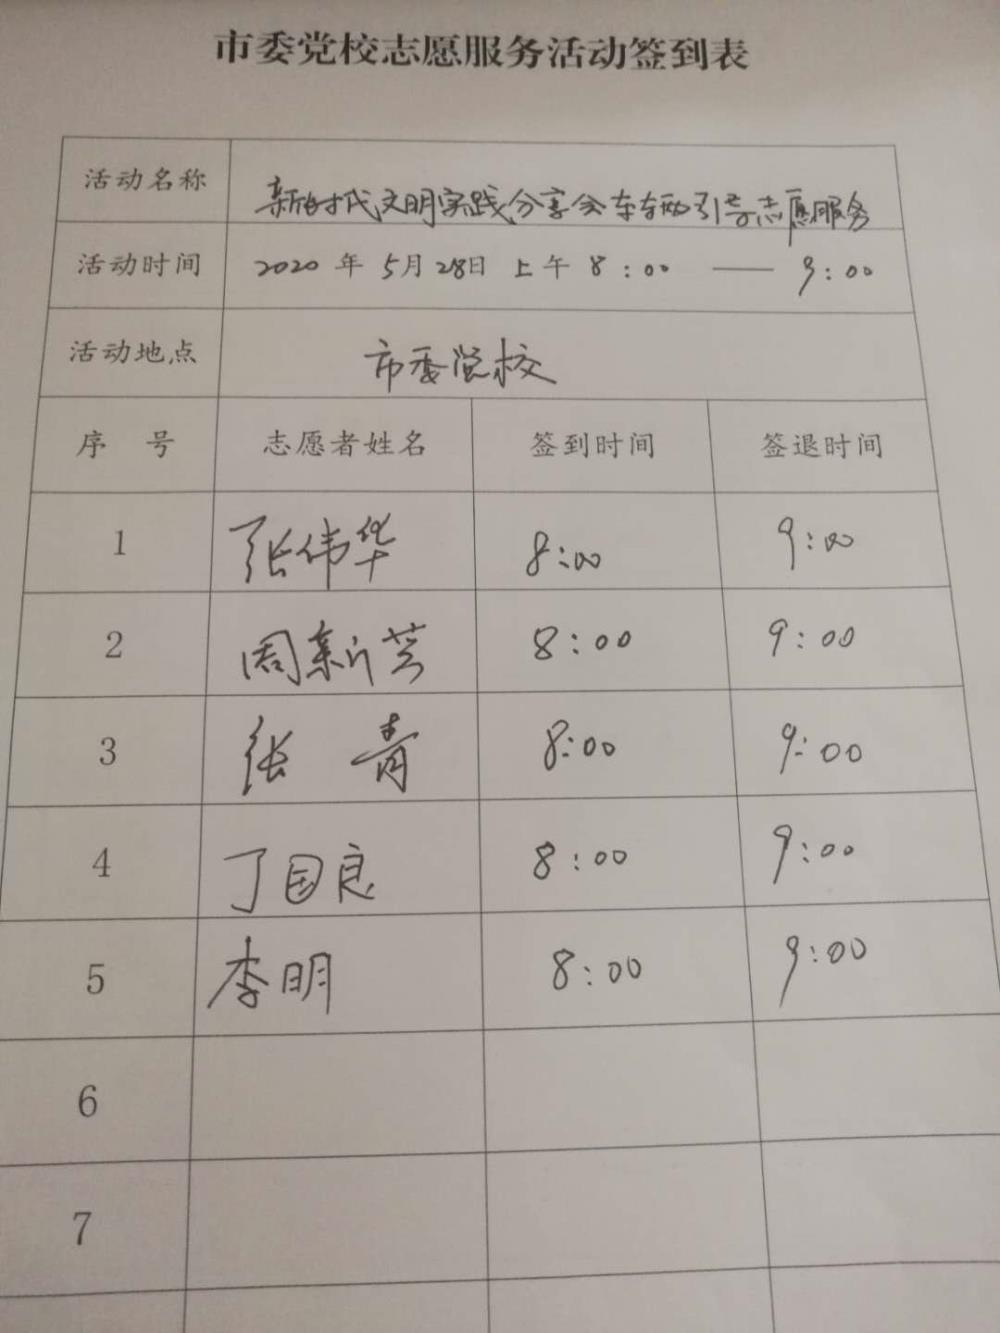 市委党校志愿服务活动签到表
活动名称 新时代文明实践分享会车辆引导志愿服务
活动时间 2020年5月28日上午8:00——9:00
活动地点 市委党校
序号 志愿者姓名 签到时间 签退时间
1 张伟华 8:00 9:00
2 周新芸 8:00 9:00
3 张青 8:00 9:00
4 丁国良 8:00 9:00
5 李明 8:00 9:00
6
7